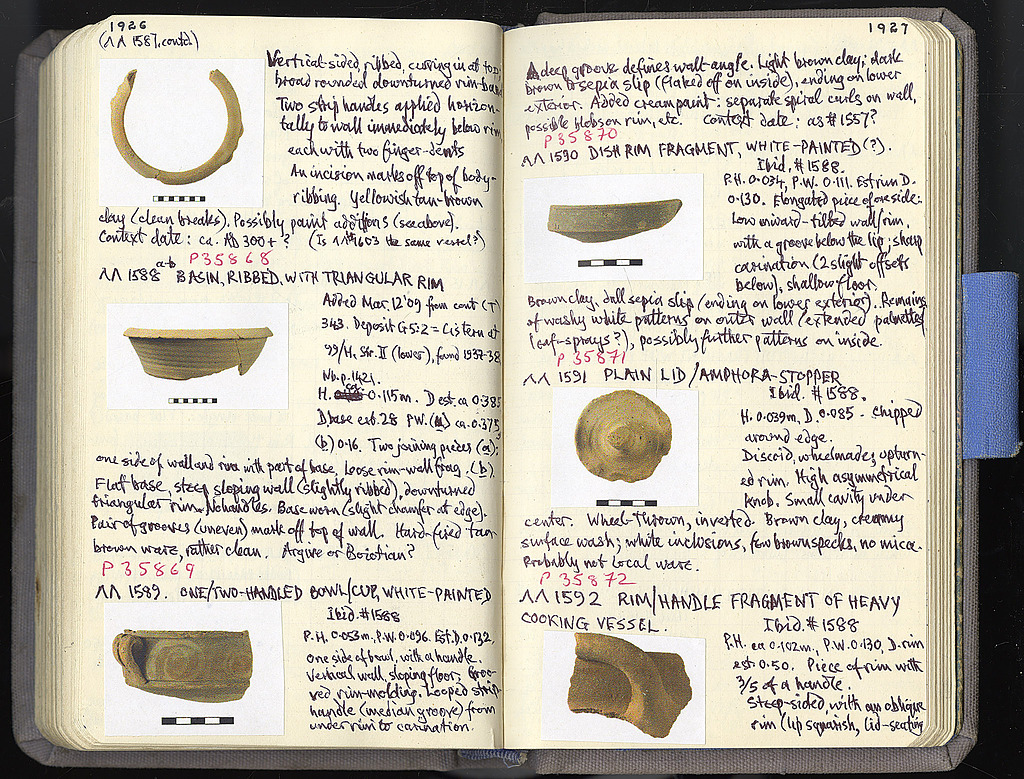 1926
(ΛΛ 1587, contd.)
Vertical-sided, ribbed, curving in at top
broad rounded downturned rim-band
Two strip handles applied horizon-
tally to wall immediately below rim,
each with two finger-dents
An incision marks off top of body-
ribbing. Yellowish tan-brown
clay (clean breaks). Possibly paint additions (see above).
Context date: ca. AD 300+? (Is ΛΛ 1603 the same vessel?)
a-b P35868
ΛΛ 1588 BASIN, RIBBED, WITH TRIANGULAR RIM
Added Mar. 12 '09 from cont (T)
343. Deposit G5:2 - Cistern at
99/H, Str. II (lower), found 1937-38,
Nb. p. 1421.
H. ca. 0.115m. D est. ca 0.385
D base est. 28 P.W. (a) ca. 0.375,
(b) 0.16. Two joining pieces (a):
one side of wall and rim with part of base. Loose rim-wall frag. (b).
Flat base, steep sloping wall (slightly ribbed), downturned
triangular rim. No handles. Base worn (slight chamfer at edge).
Pair of grooves (uneven) mark off top of wall. Hard-fired tan
brown ware, rather clean. Argive or Boiotian?
P35869
ΛΛ 1589. ONE/TWO-HANDLED BOWL/CUP, WHITE-PAINTED
Ibid. #1588
P.H. 0.053m, P.W. 0.096. Est. D. 0.132,
One side of bowl, with a handle.
Vertical wall, sloping floor; Groo-
ved, rim-molding. Looped strip
handle (median groove) from
under rim to carination.
1927
A deep groove defines wall-angle. Light brown clay; dark
brown to sepia slip (flaked off on inside), ending on lower
exterior. Added cream paint: separate spiral curls on wall,
possible blobs on rim, etc. Context date: as #1557?
P35870
ΛΛ 1590 DISH RIM FRAGMENT, WHITE-PAINTED (?).
Ibid. #1588.
P.H. 0.034, P.W. 0.111. Est rim D.
0.130. Elongated piece of one side:
Low inward-tilted wall/rim,
with a groove below the lip; sharp
carination (2 slight offsets
below), shallow floor.
Brown clay, dull sepia slip (ending on lower exterior). Remains
of washy white patterns on outer wall (extended palmettes
(leaf-sprays?), possibly further patterns on inside.
P35871
ΛΛ 1591 PLAIN LID/AMPHORA-STOPPER
Ibid. #1588.
H. 0.039m, D. 0.085 - Chipped
around edge.
Discoid, wheelmade, upturn-
ed rim. High asymmetrical
knob. Small cavity under
center. Wheel-thrown, inverted. Brown clay, creamy
surface wash; white inclusions, few brown specks, no mica.
Probably not local ware.
P35872
ΛΛ 1592 RIM/HANDLE FRAGMENT OF HEAVY
COOKING VESSEL. Ibid. #1588
P.H. ca 0.102m, P.W. 0.130, D. rim
est. 0.50. Piece of rim with
3/5 of a handle.
Steep-sided, with an oblique
rim (lip squarish, lid-seating